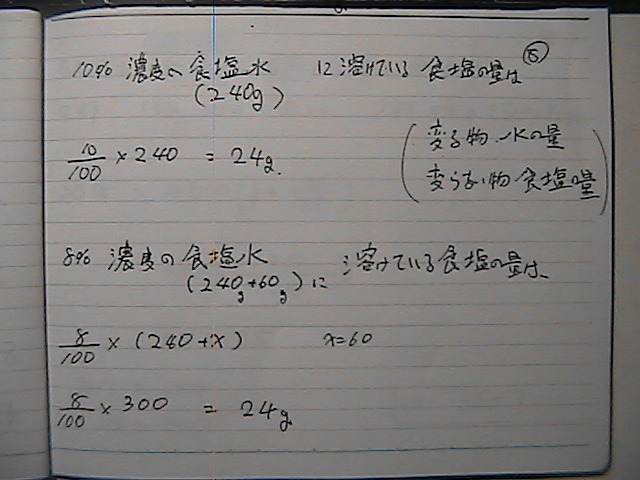 ⑤
10% 濃度の食塩水 に溶けている食塩の量は
(240g)
10/100 × 240 = 24g.
変る物.水の量
変らない物 食塩の量
8% 濃度の食塩水 溶けている食塩の量は、
(240g+60g)に
8/100 × (240+x) x=60
8/100 × 300 = 24g